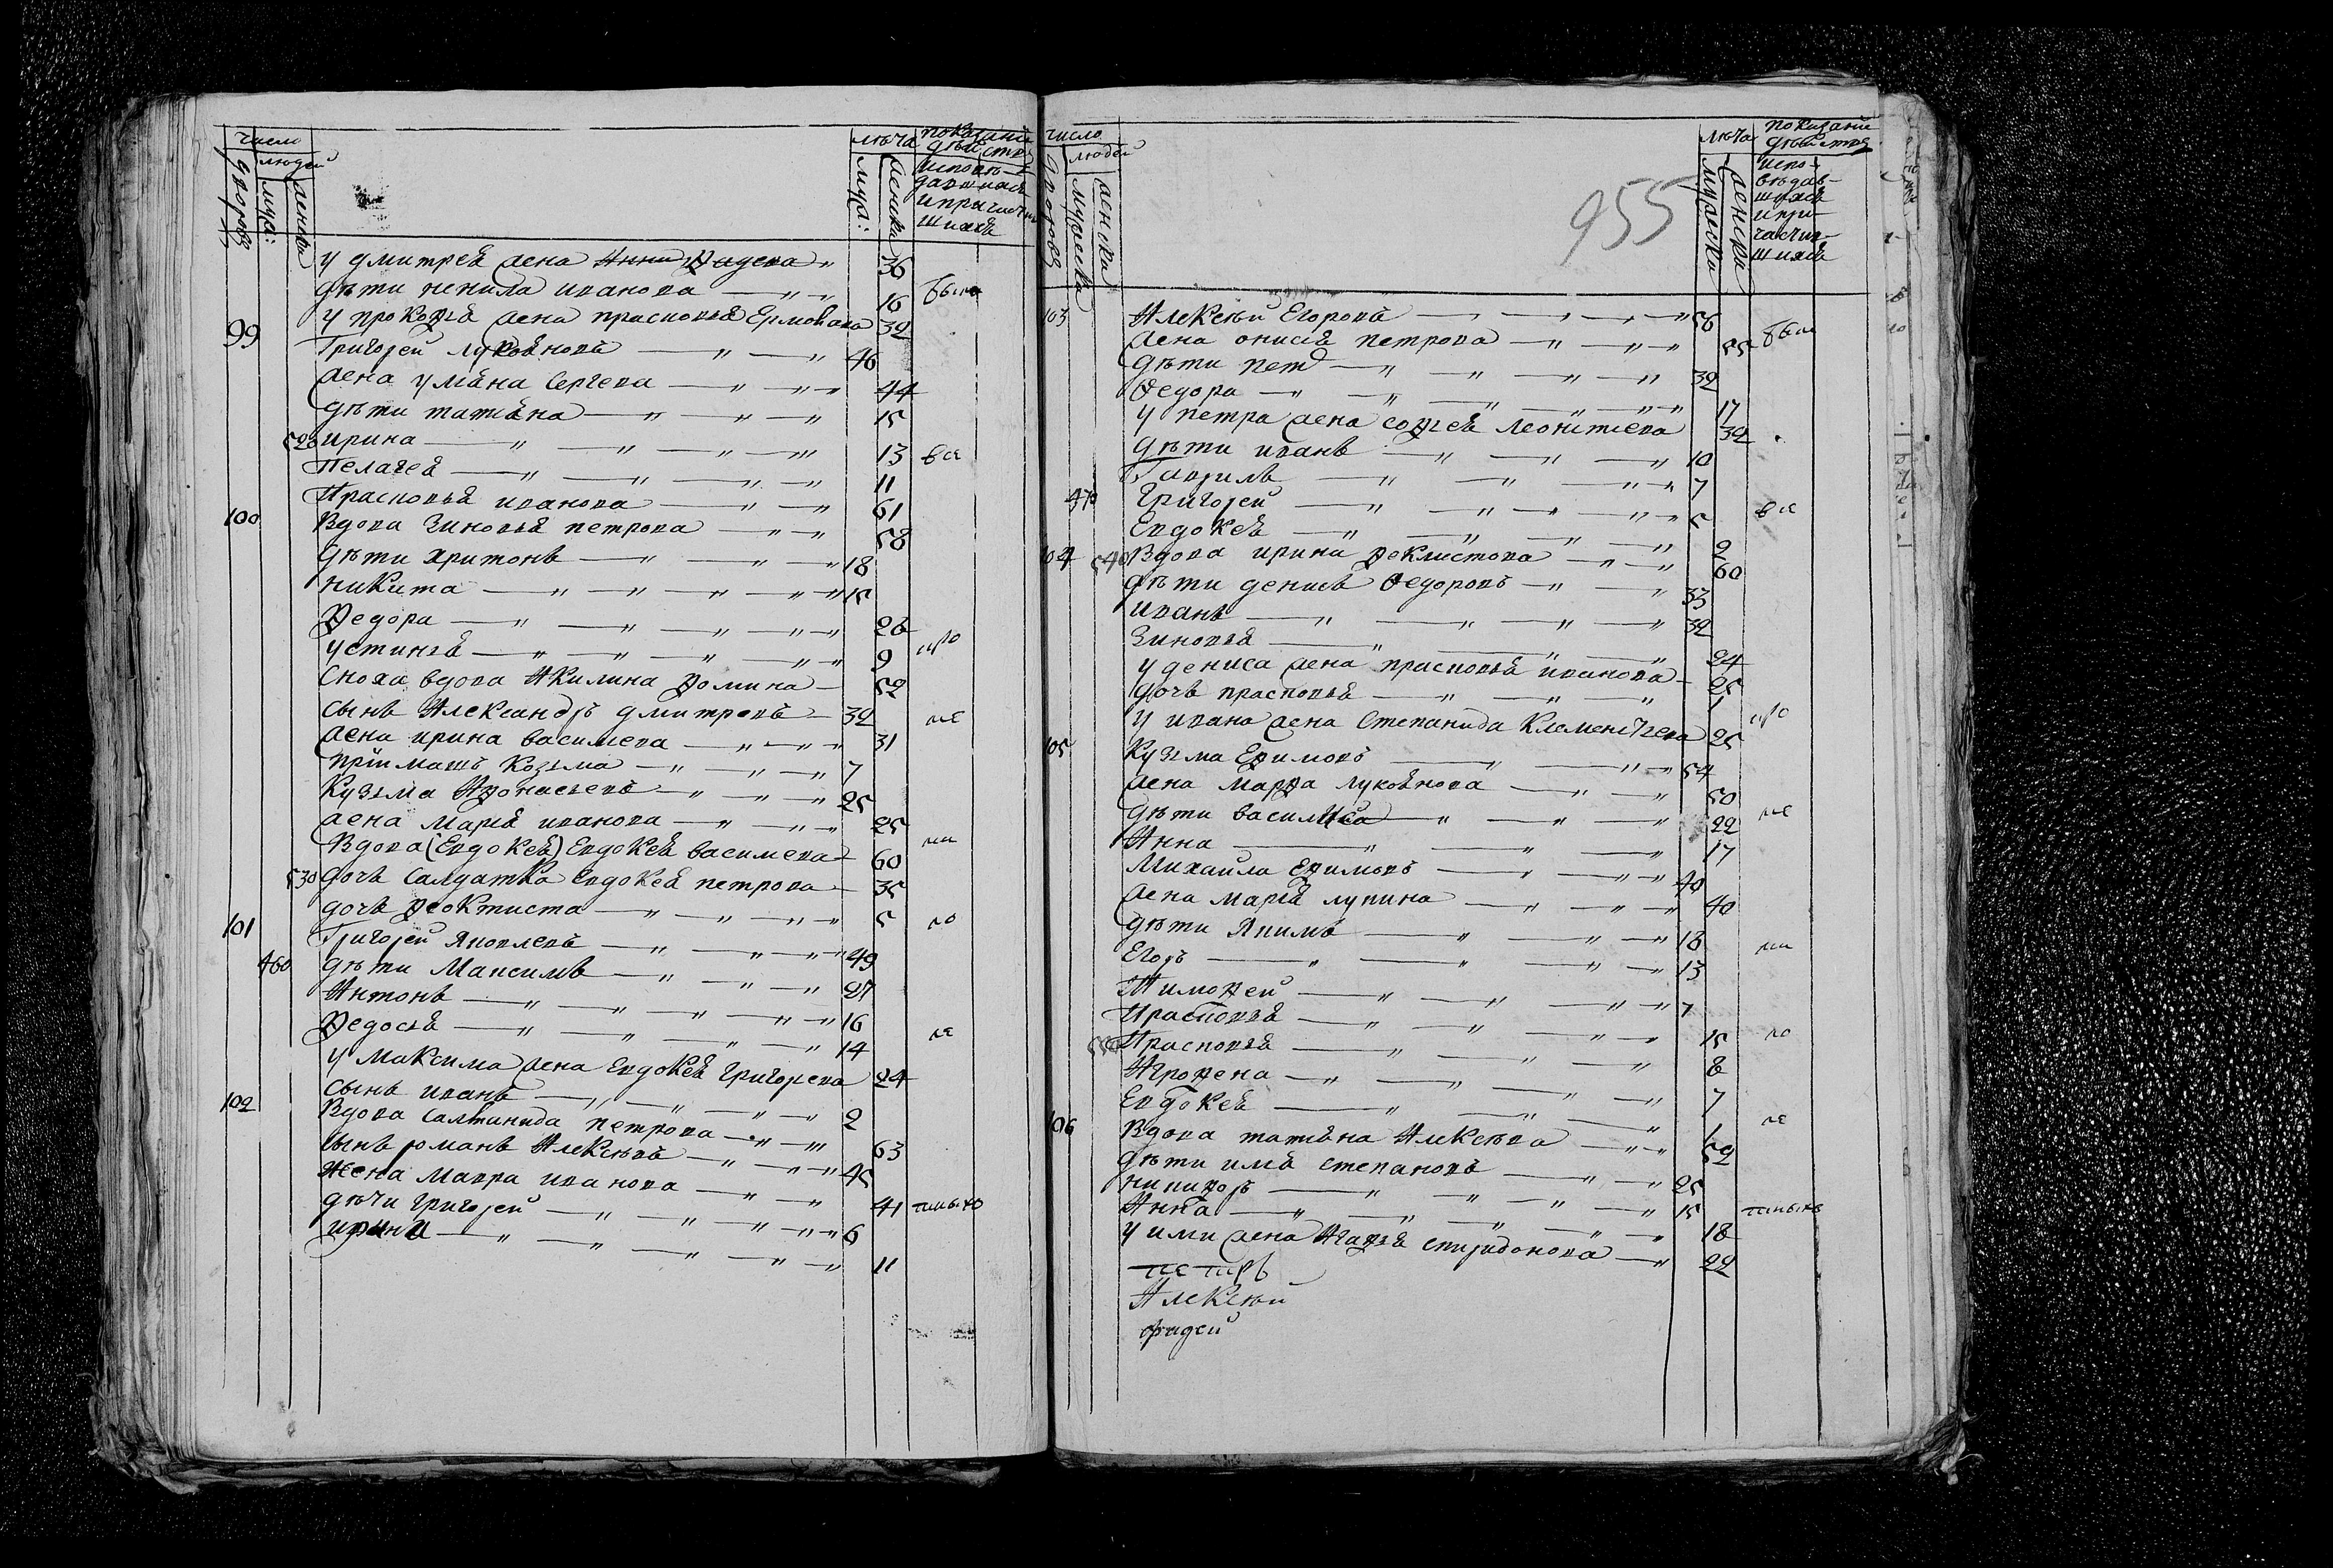 число людей лѣта показанiе дѣйств
дворовъ муж: женска муж: женска исповѣдавшихся и причастившихся
у дмитрея жена Анна Фадеева 36
дѣти ненила иванова 16 были
у прокофья жена прасковья Ермолаева 32
99 Григорей лукояновъ 46
жена ульяна Сергеева 44
дѣти татьяна 15
520 ирина 13 все
Пелагея 11
Прасковья иванова 61
100 Вдова Зиновья петрова 58
дѣти харитонъ 18
никита 15
Федора 26
устинья 9
Сноха вдова Акилина Фомина 52
сынъ Александръ дмитревъ 32
жена ирина васильева 31
прiимышъ Козьма 7
Кузьма Афонасьевъ 25
жена Марья иванова 25
Вдова (Евдокея) Евдокея васильева 60
530 дочь салдатка Евдокея петрова 35
дочь Феоктиста 5
101 Григорей Яковлевъ 49
460 дѣти Максимъ 27
Антонъ 16
Федосья 14
у максима жена Евдокея Григорьева 24
сынъ иванъ 2
102 Вдова салтанида петрова 63
сынъ романъ Алексѣевъ 45
жена Мавра иванова 41
дѣти Григорей 6
ирина 11
955
число людей лѣта показанiе дѣйства
дворовъ мужеска женска мужеска женска исповѣдавшихся и причастившихся
103 Алексѣй Егоровъ 56
жена онисья петрова 55 были
дѣти петр 32
Федора 17
у петра жена софья леонтьева 32
дѣти иванъ 10
Гаврилъ 7
470 Григорей 5 все
Евдокея 2
104 540 Вдова ирина Феклистова 60
дѣти денисъ Федоровъ 33
иванъ 32
Зиновья 24
у дениса жена прасковья иванова 25
дочь прасковья 1
у ивана жена Степанида Клементьева 25
105 Кузьма Ефимовъ 54
жена марфа лукоянова 50
дѣти василиса 22
Анна 17
Михаила Ефимовъ 40
жена марья лупина 40
дѣти Якимъ 18
Егоръ 13
Тимофей 7
Прасковья 15
550 Прасковья 8
Агрофена 7
Евдокея 1
106 Вдова татьяна Алексѣева 52
дѣти илья степановъ 25
никифоръ 15
Анна 18
у ильи жена Агафья спиридонова 22
петръ
Алексѣй
фадей